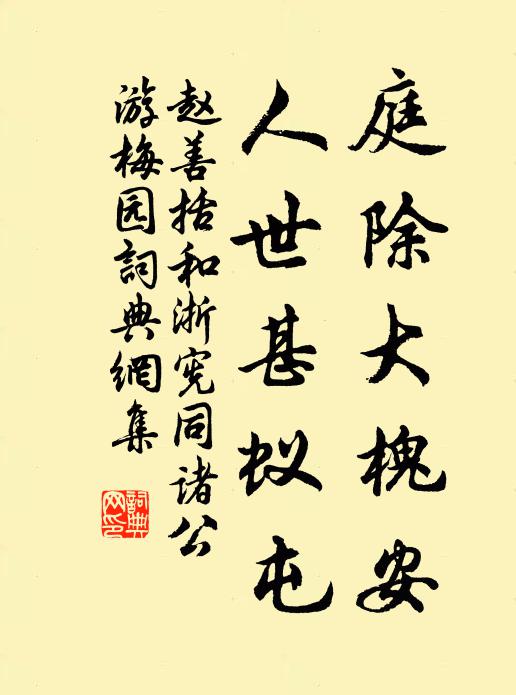 庭除大槐安
人世甚蚁屯
赵善括和浙宪同诸公
游梅园词典網集
詞典
网印